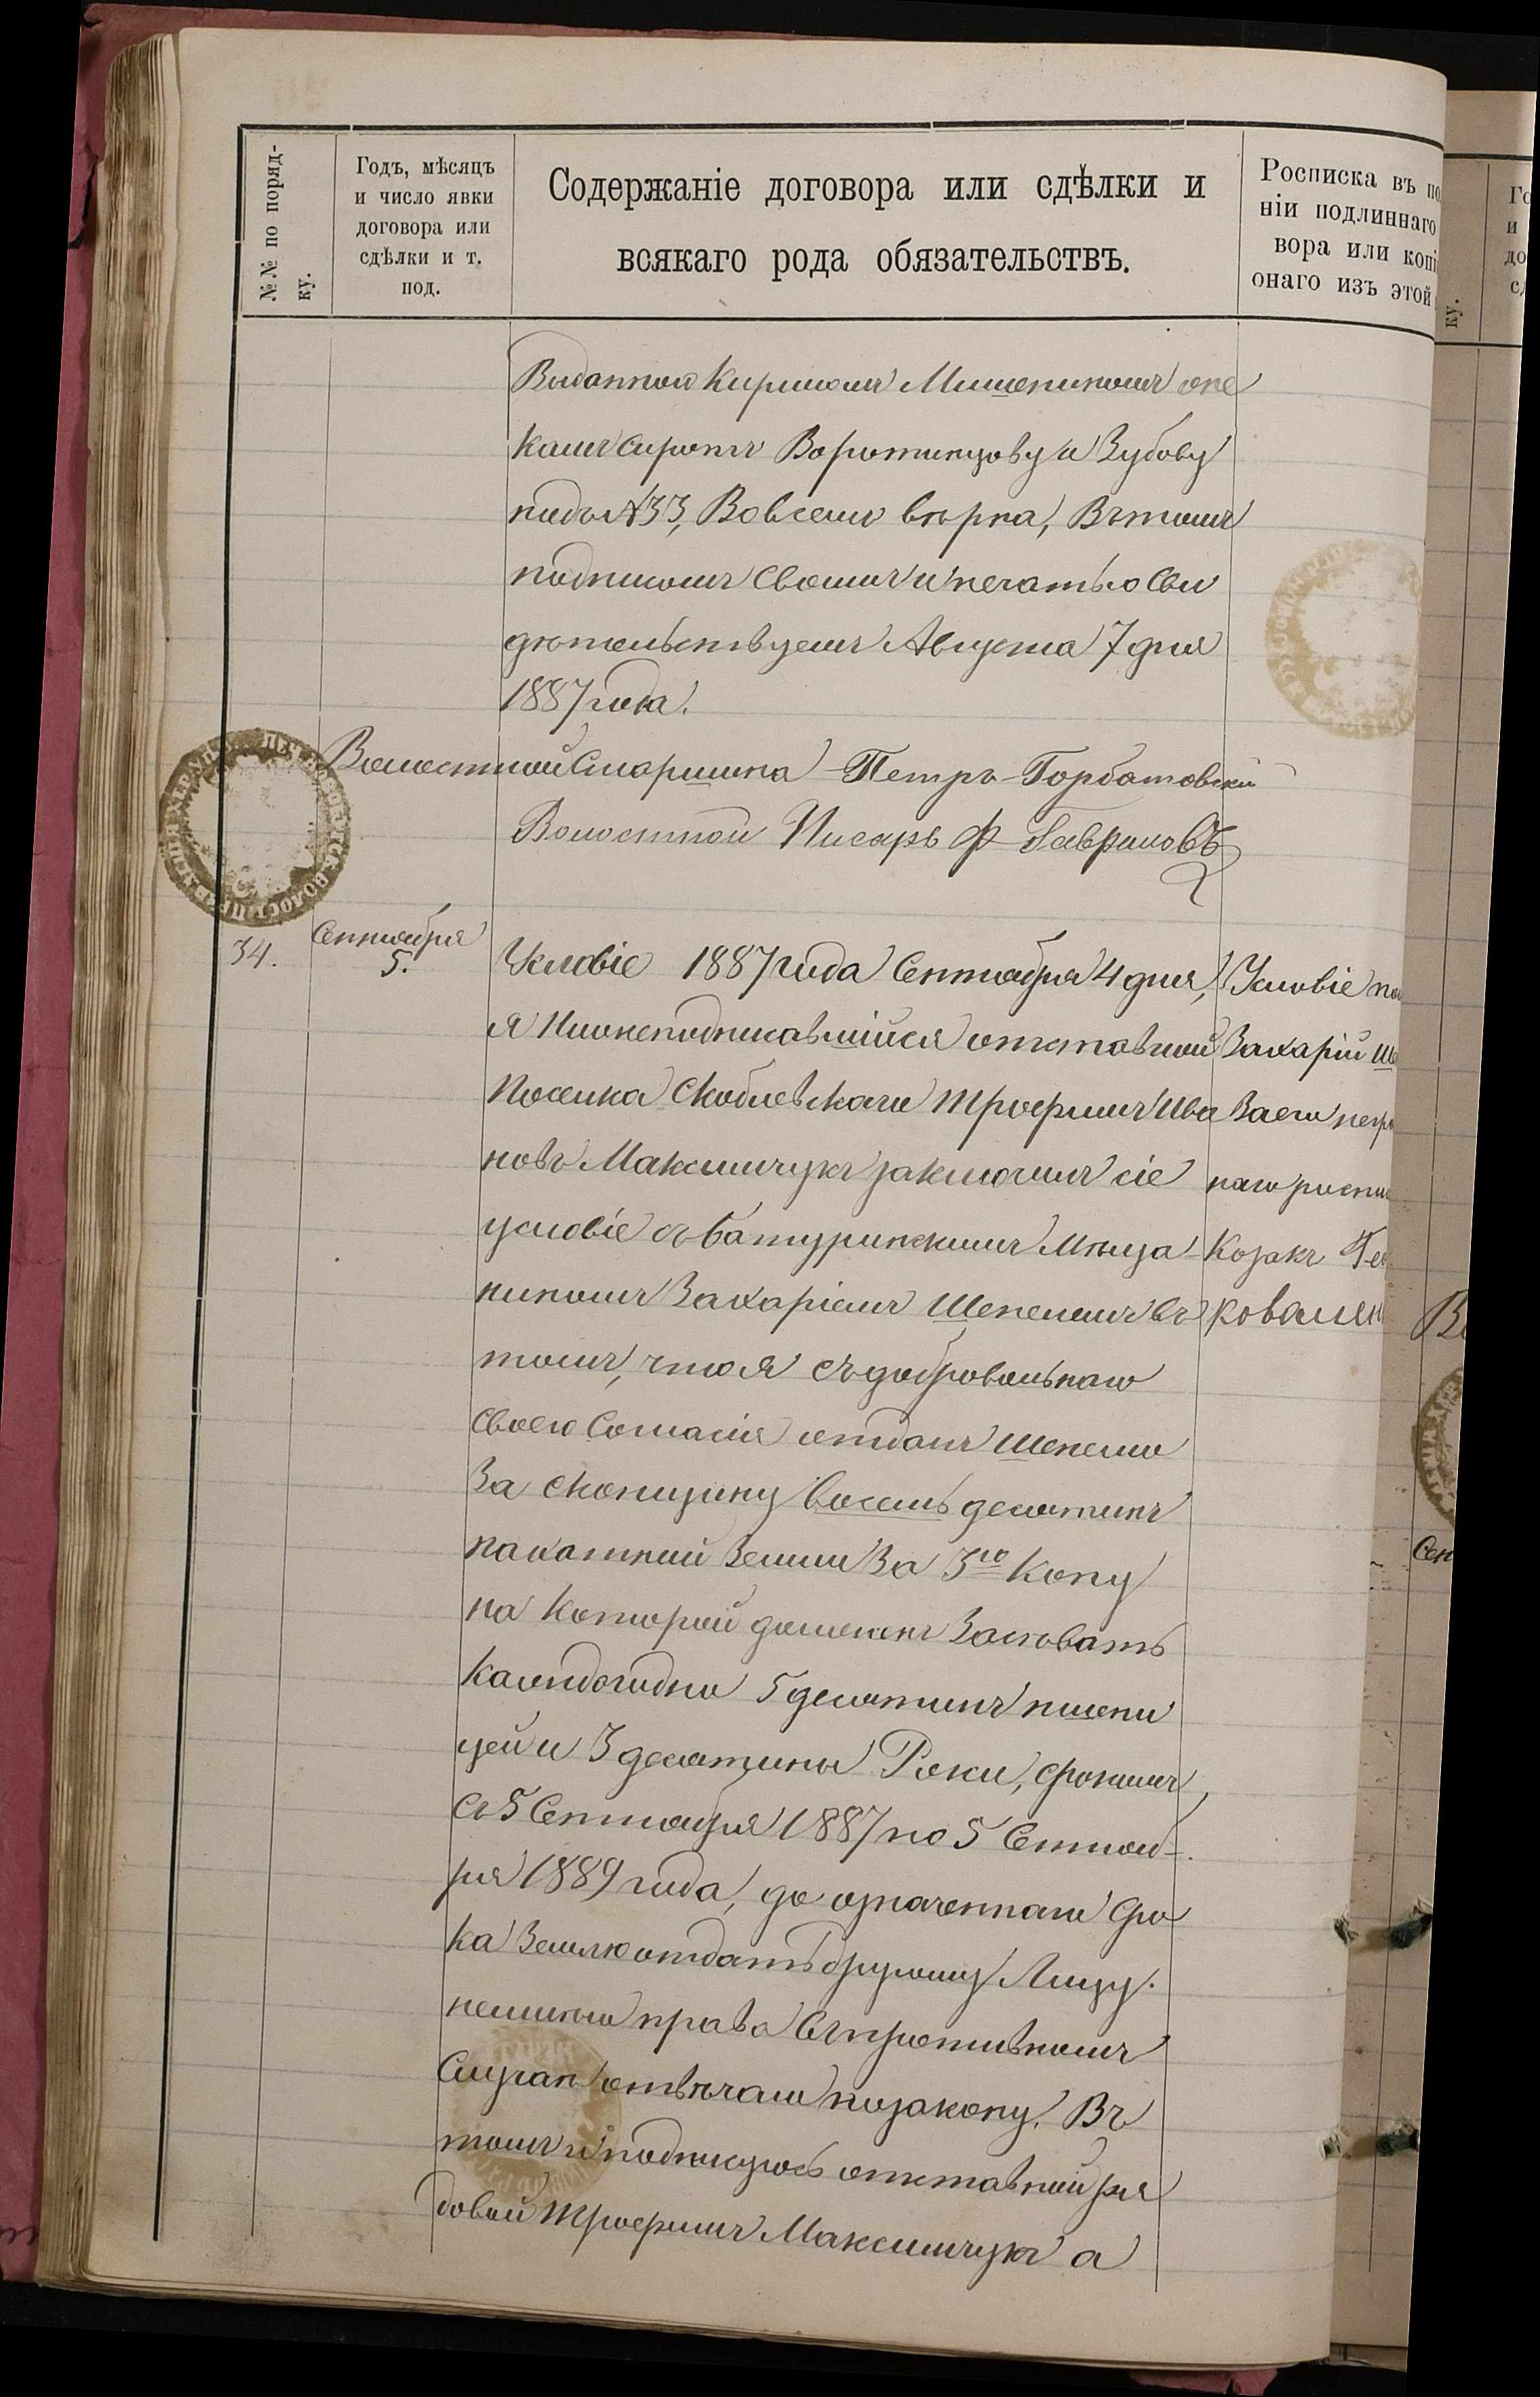 №№ по поряд-
ку.
Годъ, мѣсяцъ
и число явки
договора или
сдѣлки и т.
под.
Содержаніе договора или сдѣлки и
всякаго рода обязательствъ.
Росписка въ по
ніи подлиннаго
вора или копі
онаго изъ этой
Выданной Кириломъ Мишенинымъ опе
камъ сиротъ Воротинцову и Зубову
подъ №33, Вовсемъ вѣрна, Вътомъ
подписомъ своимъ и печатью Сви
дѣтельствуемъ Августа 7 дня
1887 года.
Волостной Старшина Петръ Горбатовскій
Волостной Писарь Ф Гавриловъ
34.
Сентября
5.
Условіе 1887 года Сентября 4 дня,
я Нижеподписавшійся отставной
Поселка Скобиевскаго Трофимъ Ива
новъ Максимчукъ заключилъ сіе
условіе съ Батуринскимъ Мѣща-
ниномъ Захаріемъ Шепелемъ въ
томъ, что я съ добровольнаго
своего Согласія отдалъ Шепелю
За скопщину восемь десятинъ
пахатной Земли За 3ю Копу
на Которой долженъ Засѣвать
Каждогодно 5 десятинъ пшени
цей и 3 десятины Ржи, срокомъ
съ 5 Сентября 1887 по 5 Сентяб-
ря 1889 года, до означеннаго Сро
ка Землю отдать другому Лицу
неимѣю права Въпротивномъ
Случаѣ отвѣчаю позакону. Въ
томъ и подписуюсь отставной ря
довой Трофимъ Максимчукъ а
Условіе по
Захарій Ше
За его негра
наго роспи
Козакъ Ге
ковален
Сен